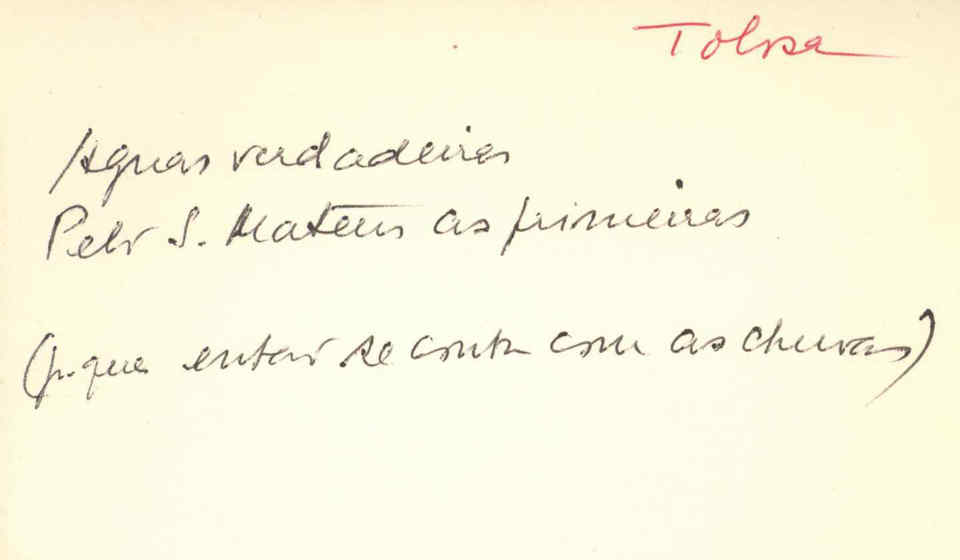 Tolosa
Aguas verdadeiras
Pelo S. Mateus as primeiras
(p. que então se conta com as chuvas)